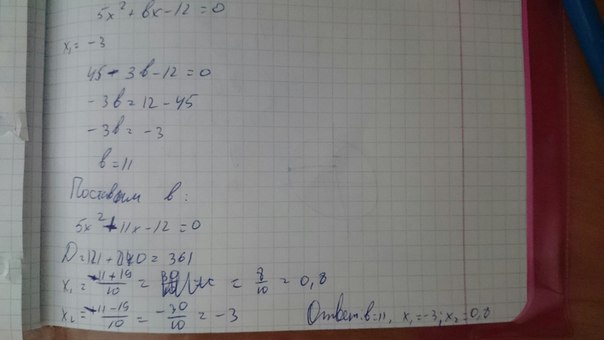 5x² + bx - 12 = 0
x₁ = -3
45 - 3b - 12 = 0
-3b = 12 - 45
-3b = -3
b = 11
Поставим b:
5x² + 11x - 12 = 0
D = 121 + 240 = 361
x₁ = (-11 + 19)/10 = = 8/10 = 0,8
x₂ = (-11 - 19)/10 = -30/10 = -3
Ответ: b = 11, x₁ = -3; x₂ = 0,8